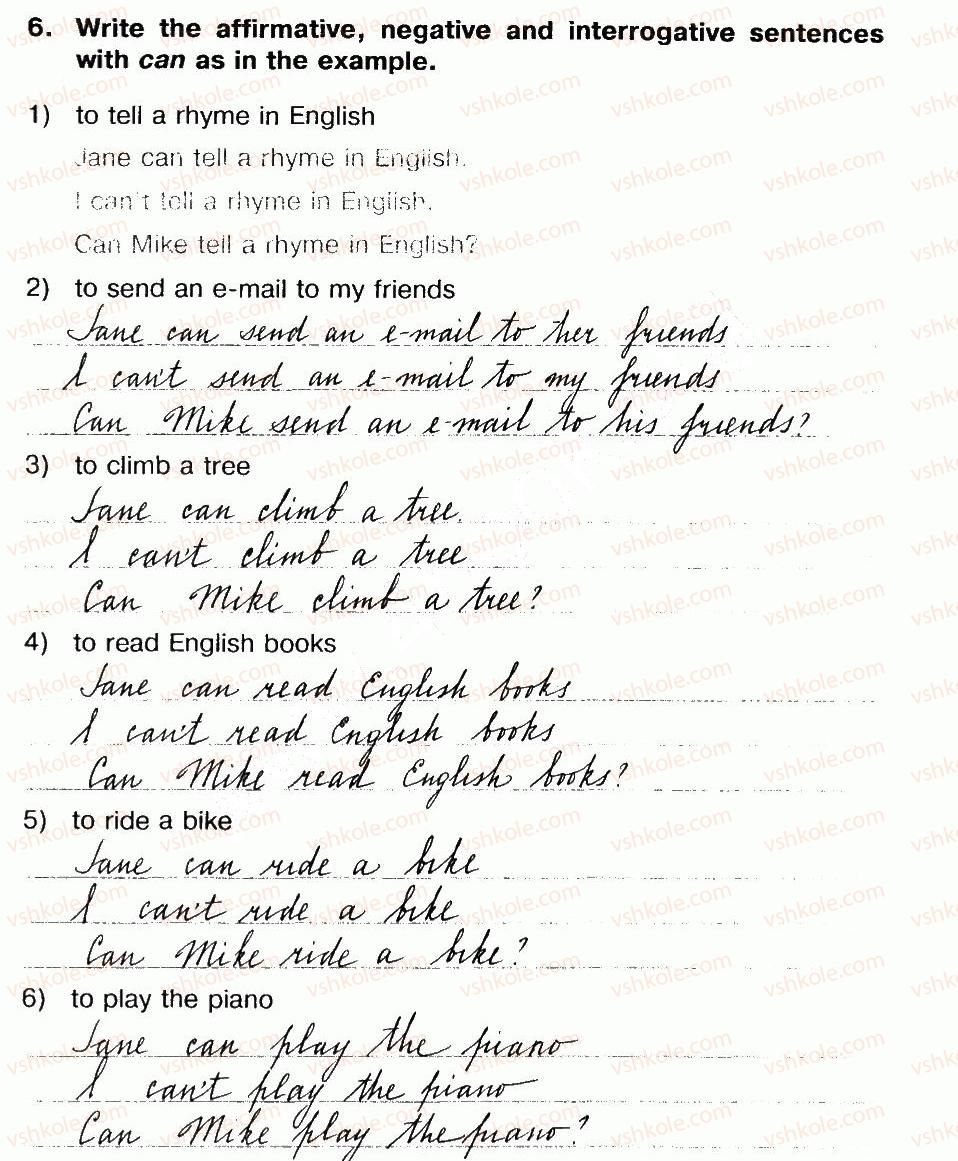 6. Write the affirmative, negative and interrogative sentences
with can as in the example.
1) to tell a rhyme in English
Jane can tell a rhyme in English.
I can't tell a rhyme in English.
Can Mike tell a rhyme in English?
2) to send an e-mail to my friends
Jane can send an e-mail to her friends
I can't send an e-mail to my friends
Can Mike send an e-mail to his friends?
3) to climb a tree
Jane can climb a tree.
I can't climb a tree
Can Mike climb a tree?
4) to read English books
Jane can read English books
I can't read English books
Can Mike read English books?
5) to ride a bike
Jane can ride a bike
I can't ride a bike
Can Mike ride a bike?
6) to play the piano
Jane can play the piano
I can't play the piano
Can Mike play the piano?
vshkole.com